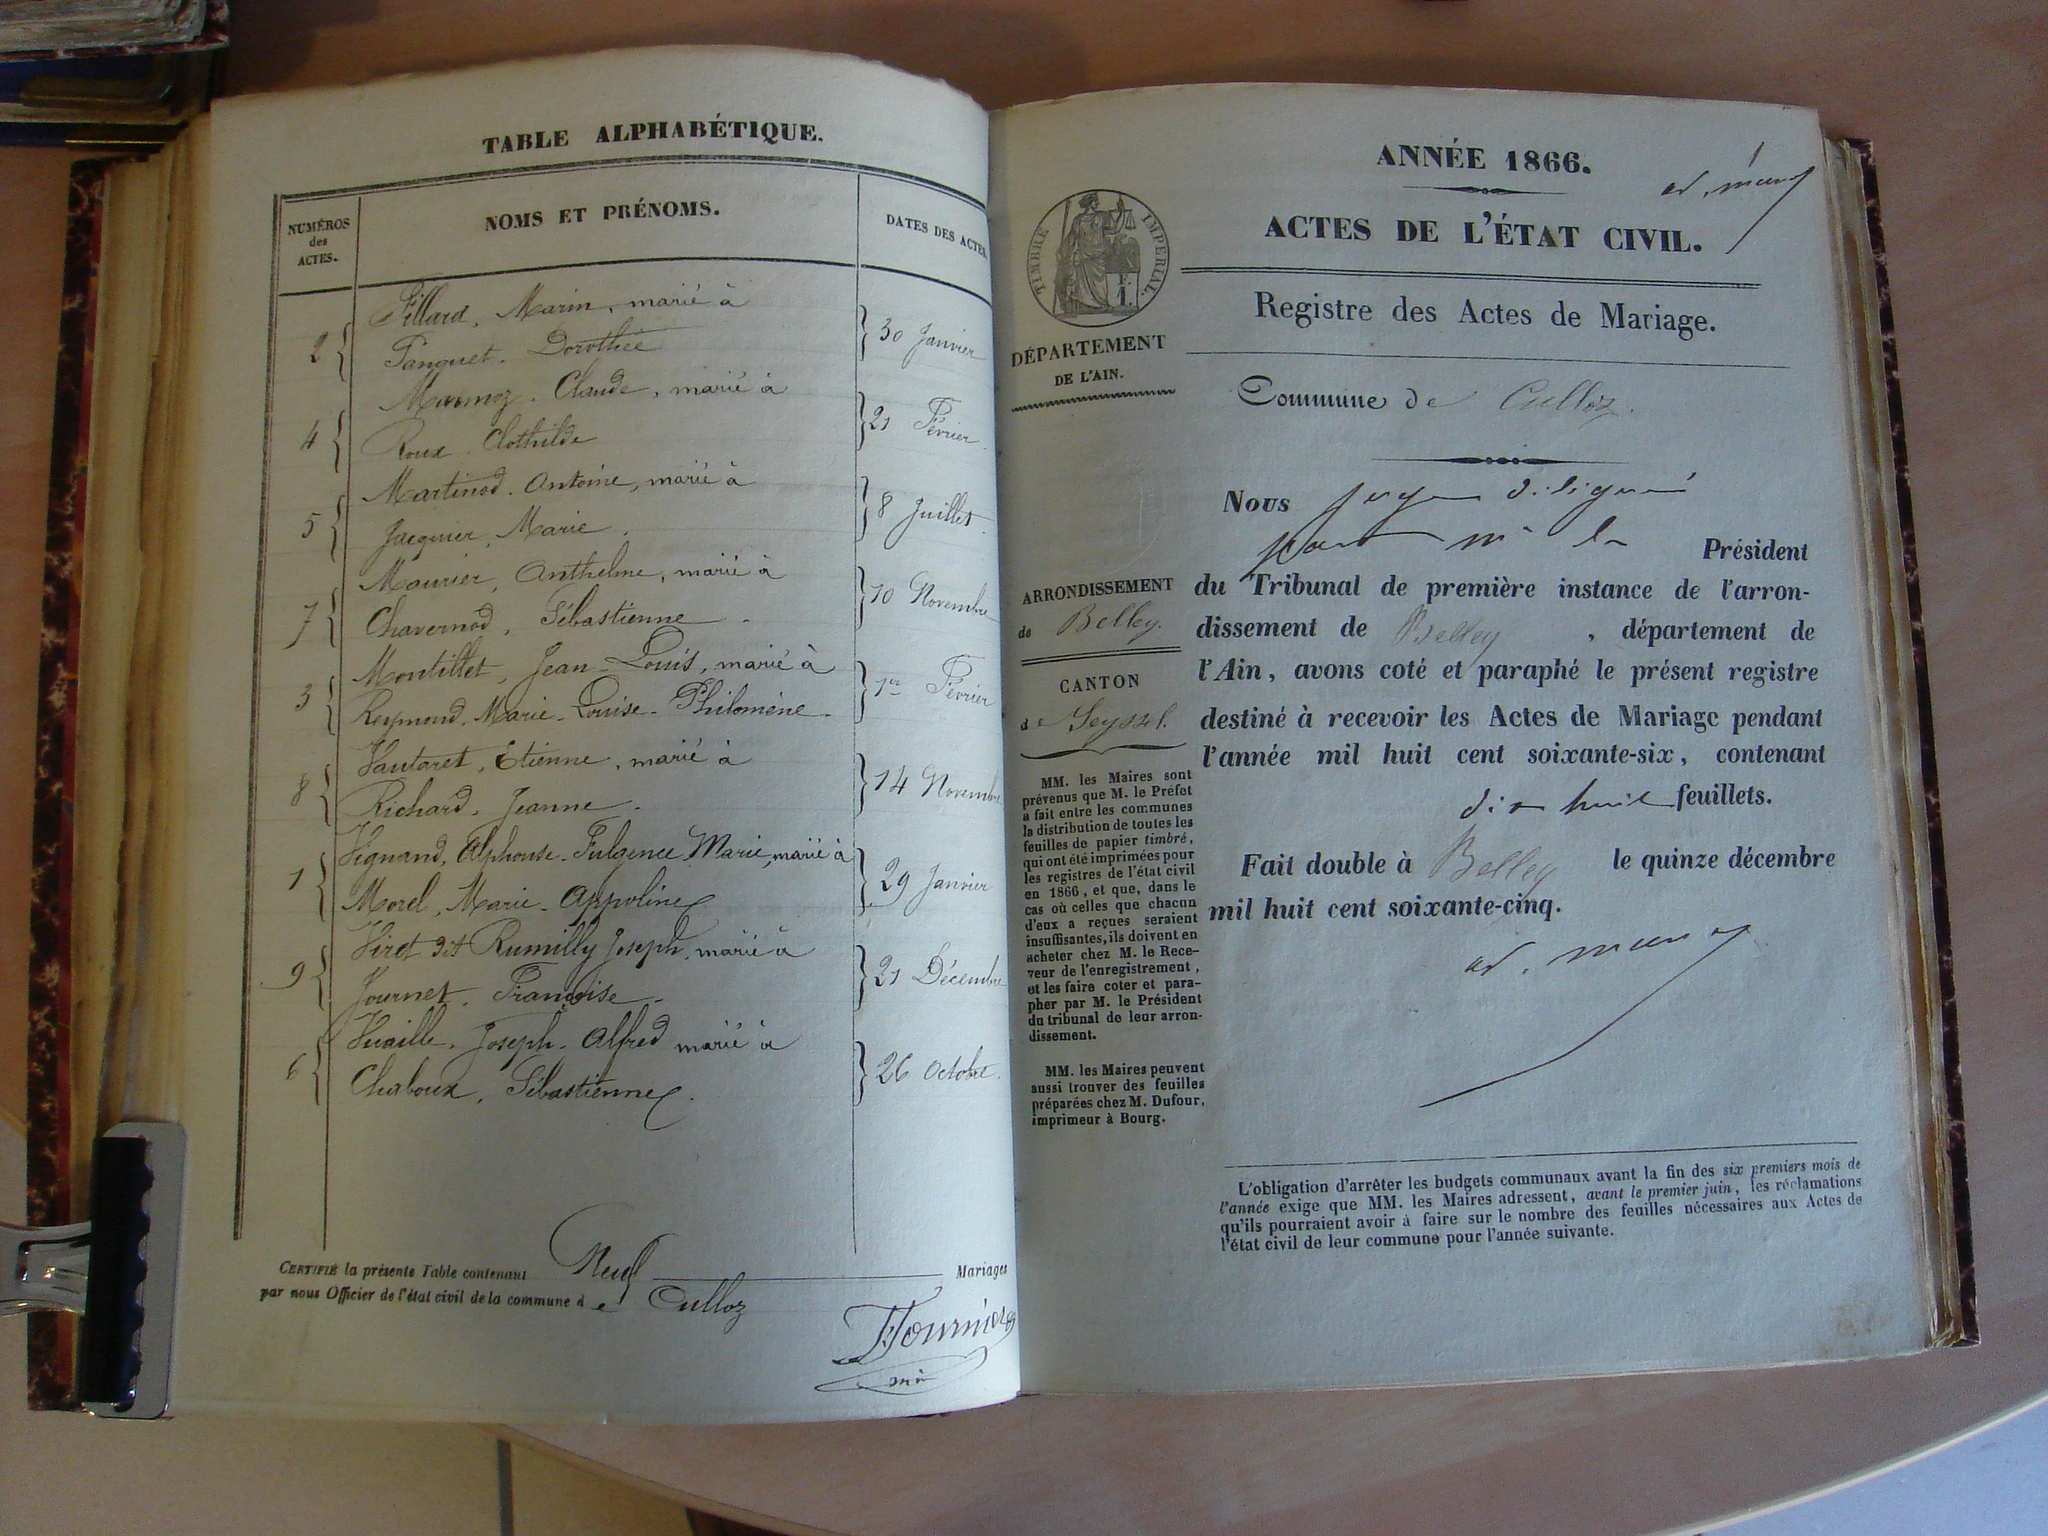 TABLE ALPHABÉTIQUE.
NUMÉROS des ACTES.
NOMS ET PRÉNOMS.
DATES DES ACTES
2 Fillard, Marin, marié à
Panguet. Dorothée
30 Janvier
Marmoz. Claude, marié à
4 Roux. Clothilde
21 Février
Martinod. Antoine, marié à
5 Jacquier, Marie.
8 Juillet
Mourier, Anthelme, marié à
7 Chavernod, Sébastienne.
10 Novembre
Montillet, Jean-Louis, marié à
3 Reymond. Marie-Louise-Philomène.
1er Février
Vautaret, Etienne, marié à
8 Richard, Jeanne.
14 Novembre
Vignand, Alphonse-Fulgence Marie, marié à
1 Morel, Marie-Appoline
29 Janvier
Viret dit Rumilly Joseph, marié à
9 Journet. Françoise.
21 Décembre
Vuaille, Joseph-Alfred marié à
6 Chaboux, Sébastienne.
26 Octobre.
CERTIFIÉ la présente Table contenant Neuf Mariages
par nous Officier de l'état civil de la commune de Culloz
Fournier
ANNÉE 1866.
ACTES DE L'ÉTAT CIVIL.
TIMBRE IMPÉRIAL.
1
Registre des Actes de Mariage.
DÉPARTEMENT
DE L'AIN.
Commune de Culloz.
Nous juge
Président
du Tribunal de première instance de l'arron-
dissement de Belley, département de
l'Ain, avons coté et paraphé le présent registre
destiné à recevoir les Actes de Mariage pendant
l'année mil huit cent soixante-six, contenant
dix huit feuillets.
Fait double à Belley le quinze décembre
mil huit cent soixante-cinq.
ARRONDISSEMENT
de Belley.
CANTON
de Seyssel.
MM. les Maires sont
prévenus que M. le Préfet
a fait entre les communes
la distribution de toutes les
feuilles de papier timbré,
qui ont été imprimées pour
les registres de l'état civil
en 1866, et que, dans le
cas où celles que chacun
d'eux a reçues seraient
insuffisantes, ils doivent en
acheter chez M. le Rece-
veur de l'enregistrement,
et les faire coter et para-
pher par M. le Président
du tribunal de leur arron-
dissement.
MM. les Maires peuvent
aussi trouver des feuilles
préparées chez M. Dufour,
imprimeur à Bourg.
L'obligation d'arrêter les budgets communaux avant la fin des six premiers mois de
l'année exige que MM. les Maires adressent, avant le premier juin, les réclamations
qu'ils pourraient avoir à faire sur le nombre des feuilles nécessaires aux Actes de
l'état civil de leur commune pour l'année suivante.